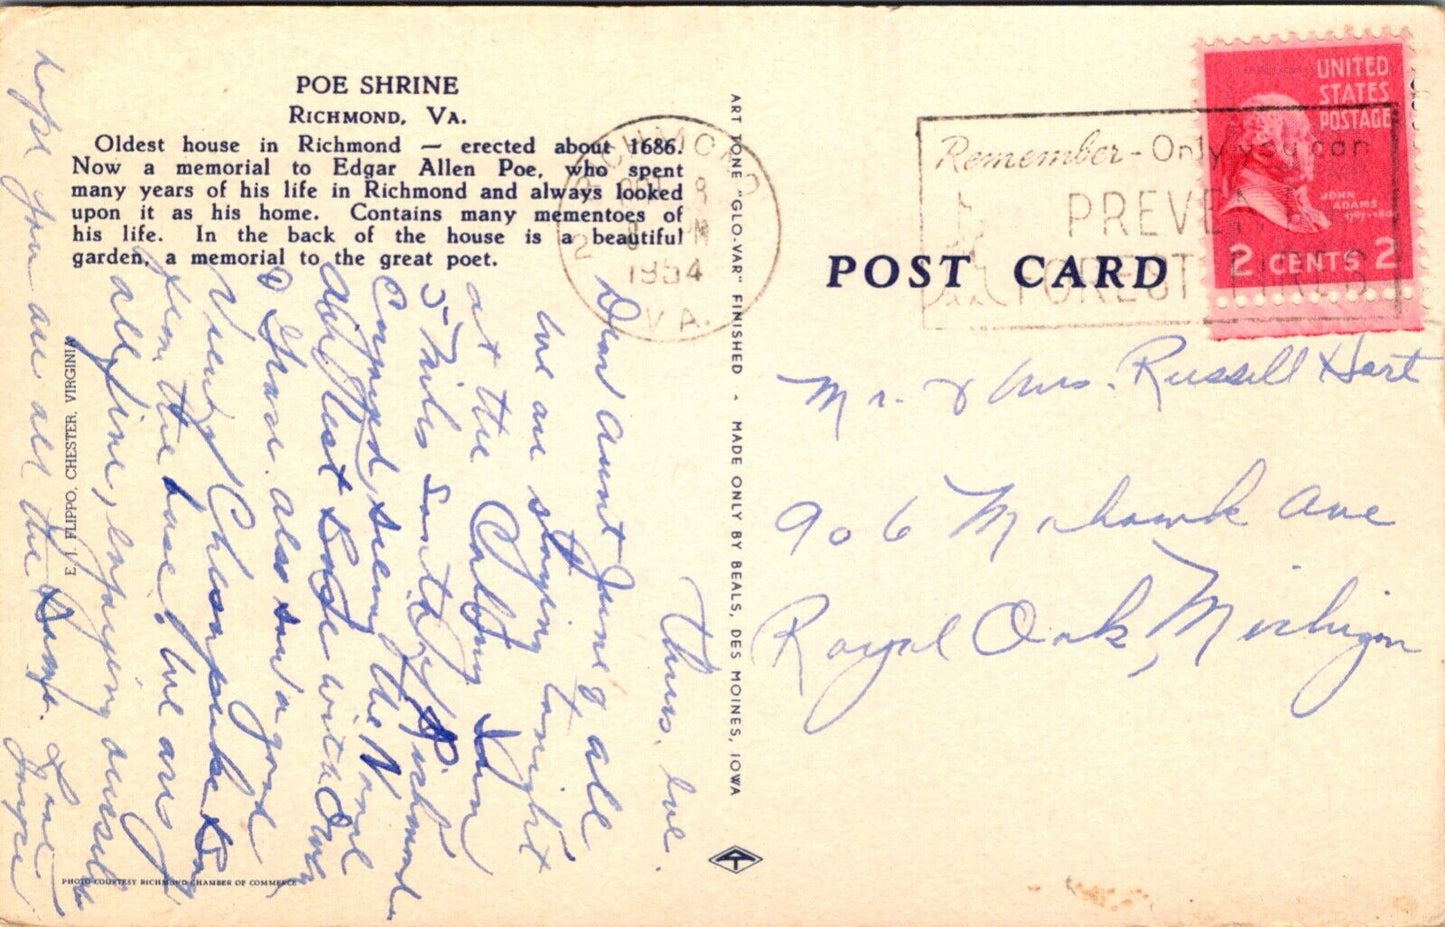 POE SHRINE
RICHMOND, VA.
Oldest house in Richmond — erected about 1686.
Now a memorial to Edgar Allen Poe, who spent
many years of his life in Richmond and always looked
upon it as his home. Contains many mementoes of
his life. In the back of the house is a beautiful
garden, a memorial to the great poet.
E. J. FLIPPO, CHESTER, VIRGINIA
PHOTO COURTESY RICHMOND CHAMBER OF COMMERCE
ART TONE "GLO-VAR" FINISHED - MADE ONLY BY BEALS, DES MOINES, IOWA
RICHMOND
OCT 8
PM
1954
VA.
Remember - Only you can
PREVENT
FOREST FIRES
UNITED
STATES
POSTAGE
JOHN
ADAMS
2 CENTS 2
POST CARD
Mr. & Mrs. Russell Hart
906 Mohawk Ave
Royal Oak, Michigan
Thurs. Eve.
Dear Aunt June & all
We are staying tonight
at the Colony Inn
5 Miles South of Richmond
Enjoyed seeing the Naval
Air Test Base with
& Grace. also had a good
View of Chesapeake Bay
from the base. We are
all fine, enjoying ourselves
hope you are all the same. Love
Joyce